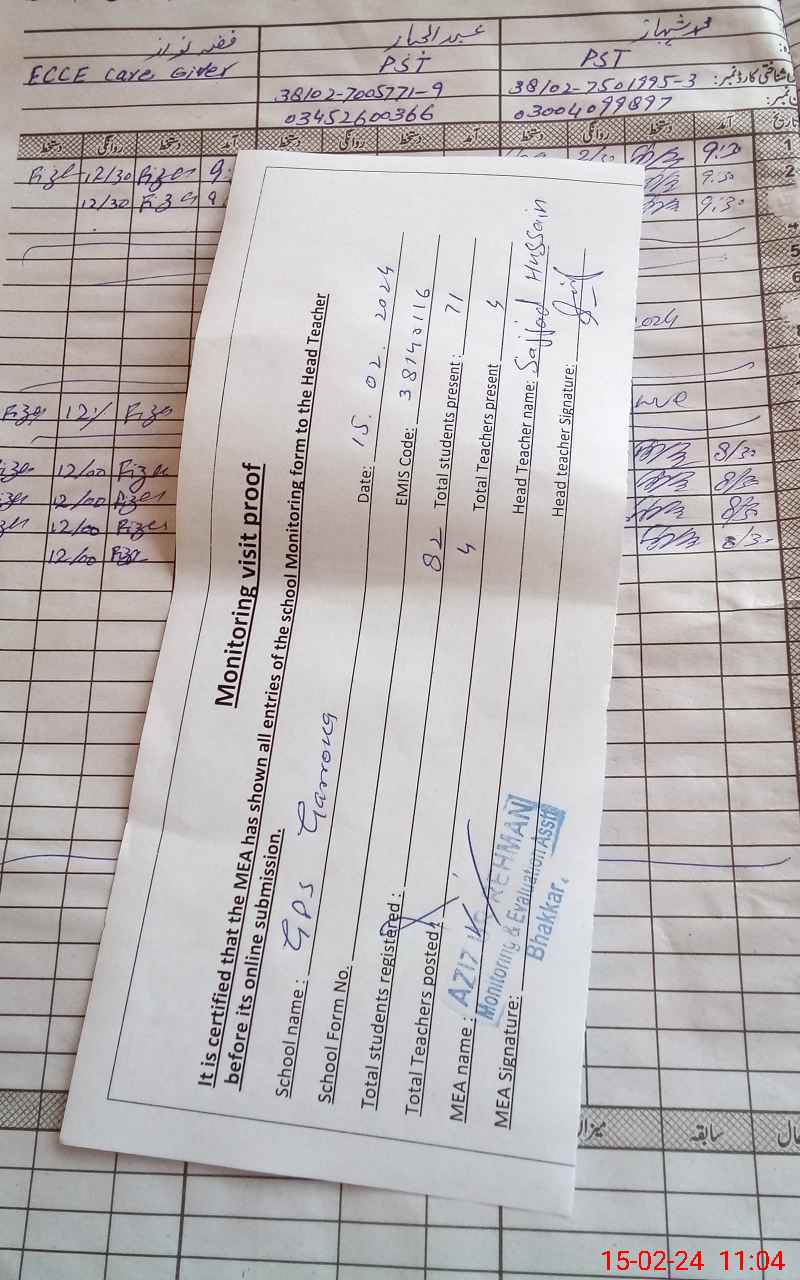 فضہ نواز
عبدالجبار
محمد شہباز
ECCE Care Giver
PST
PST
38102-7005771-9
38102-7501995-3
03452600366
03004099897
دستخط روانگی دستخط آمد
دستخط روانگی دستخط آمد
دستخط روانگی دستخط آمد تاریخ
12/30 9:30
12/30 9:30
9:30
Monitoring visit proof
It is certified that the MEA has shown all entries of the school Monitoring form to the Head Teacher
before its online submission.
School name : GPS Garrong
School Form No. Date: 15.02.2024
EMIS Code: 38140116
Total students registered : 82 Total students present : 71
Total Teachers posted : 4 Total Teachers present 4
MEA name : AZIZ UR REHMAN Head Teacher name: Sajjad Hussain
Monitoring & Evaluation Asstt
Bhakkar.
MEA Signature: Head teacher Signature:
12/00 8/30
12/00 8/30
12/00 8/30
12/00 8/30
سابقہ
میزان
15-02-24 11:04